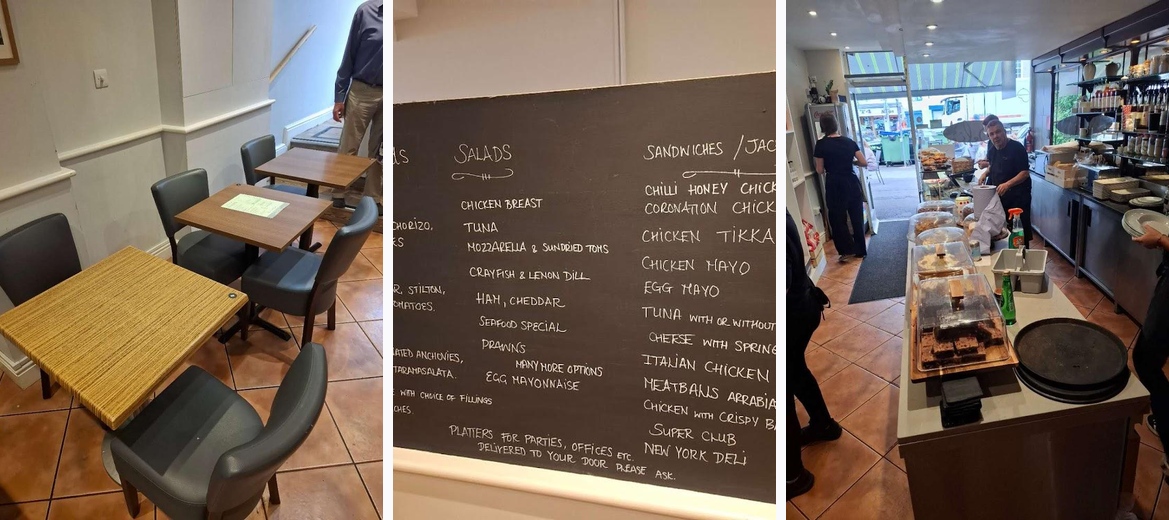 SALADS
CHICKEN BREAST
TUNA
MOZZARELLA & SUNDRIED TOMS
CRAYFISH & LEMON DILL
HAM, CHEDDAR
SEAFOOD SPECIAL
PRAWNS
MANY MORE OPTIONS
EGG MAYONNAISE
PLATTERS FOR PARTIES, OFFICES ETC.
DELIVERED TO YOUR DOOR PLEASE ASK.
LS
CHORIZO,
ES
R, STILTON,
OMATOES.
ATED ANCHOVIES,
TARAMASALATA.
E WITH CHOICE OF FILLINGS
CHES.
SANDWICHES / JAC
CHILLI HONEY CHICK
CORONATION CHICK
CHICKEN TIKKA
CHICKEN MAYO
EGG MAYO
TUNA WITH OR WITHOUT
CHEESE WITH SPRING
ITALIAN CHICKEN
MEATBALLS ARRABIA
CHICKEN WITH CRISPY BA
SUPER CLUB
NEW YORK DELI